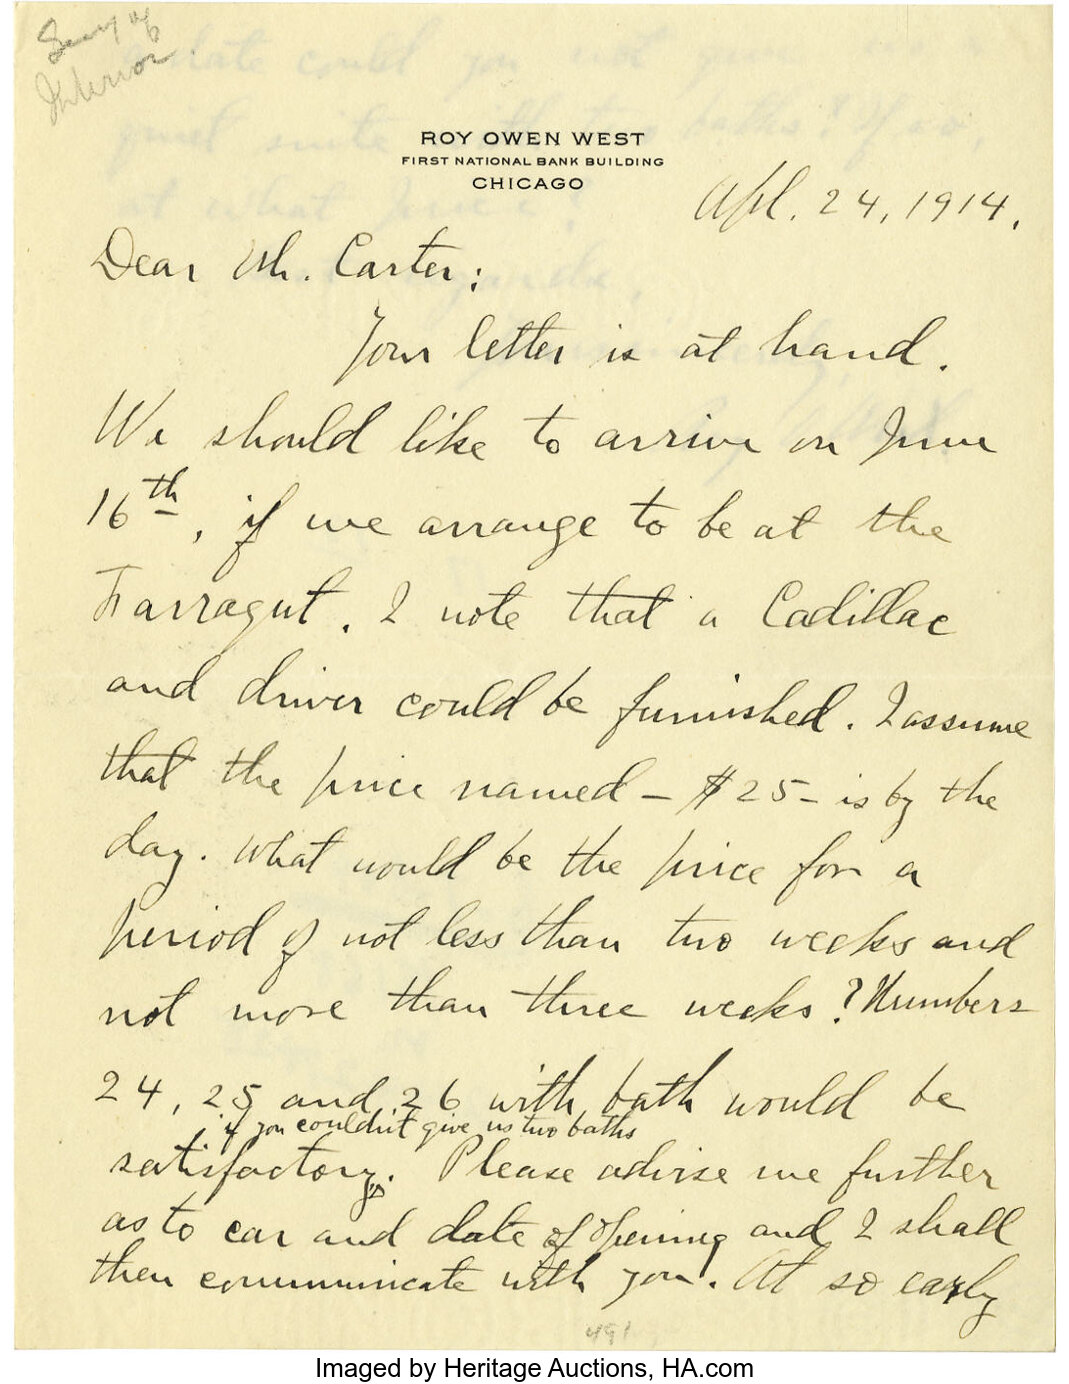 Secy of
Interior
ROY OWEN WEST
FIRST NATIONAL BANK BUILDING
CHICAGO
Apl. 24, 1914.
Dear Mr. Carter;
Your letter is at hand.
We should like to arrive on June
16th, if we arrange to be at the
Farragut. I note that a Cadillac
and driver could be furnished. I assume
that the price named – $25 – is by the
day. What would be the price for a
period of not less than two weeks and
not more than three weeks? Numbers
24, 25 and 26 with bath would be
if you couldn't give us two baths
satisfactory. Please advise me further
as to car and date of opening and I shall
then communicate with you. At so early
491
Imaged by Heritage Auctions, HA.com